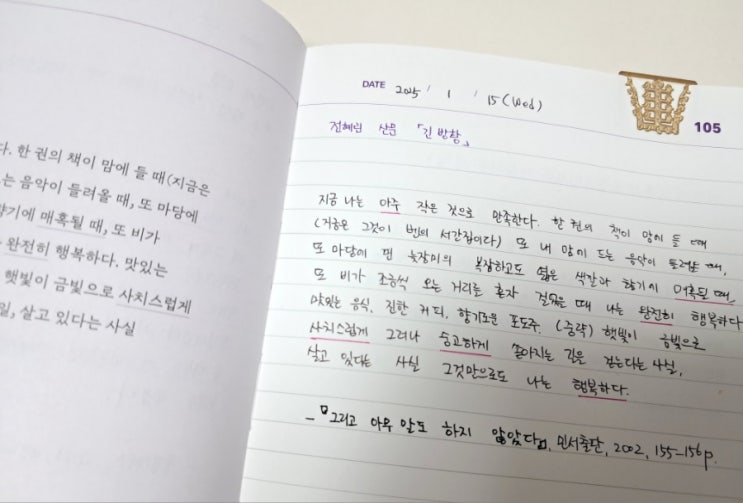 다. 한 권의 책이 맘에 들 때(지금은
는 음악이 들려올 때, 또 마당에
향기에 매혹될 때, 또 비가
완전히 행복하다. 맛있는
햇빛이 금빛으로 사치스럽게
일, 살고 있다는 사실
DATE 2025 / 1 / 15 (Wed)
105
전혜린 산문 「긴 방황」
지금 나는 아주 작은 것으로 만족한다. 한 권의 책이 맘에 들 때
(지금은 그것이 벤의 서간집이다) 또 내 맘이 드는 음악이 들려올 때,
또 마당에 핀 늦장미의 복잡하고도 엷은 색깔과 향기에 매혹될 때,
또 비가 조금씩 오는 거리를 혼자 걸었을 때 나는 완전히 행복하다
맛있는 음식, 진한 커피, 향기로운 포도주. (중략) 햇빛이 금빛으로
사치스럽게 그러나 숭고하게 쏟아지는 길을 걷는다는 사실,
살고 있다는 사실 그것만으로도 나는 행복하다.
-『그리고 아무 말도 하지 않았다』, 민서출판, 2002, 155-156p.